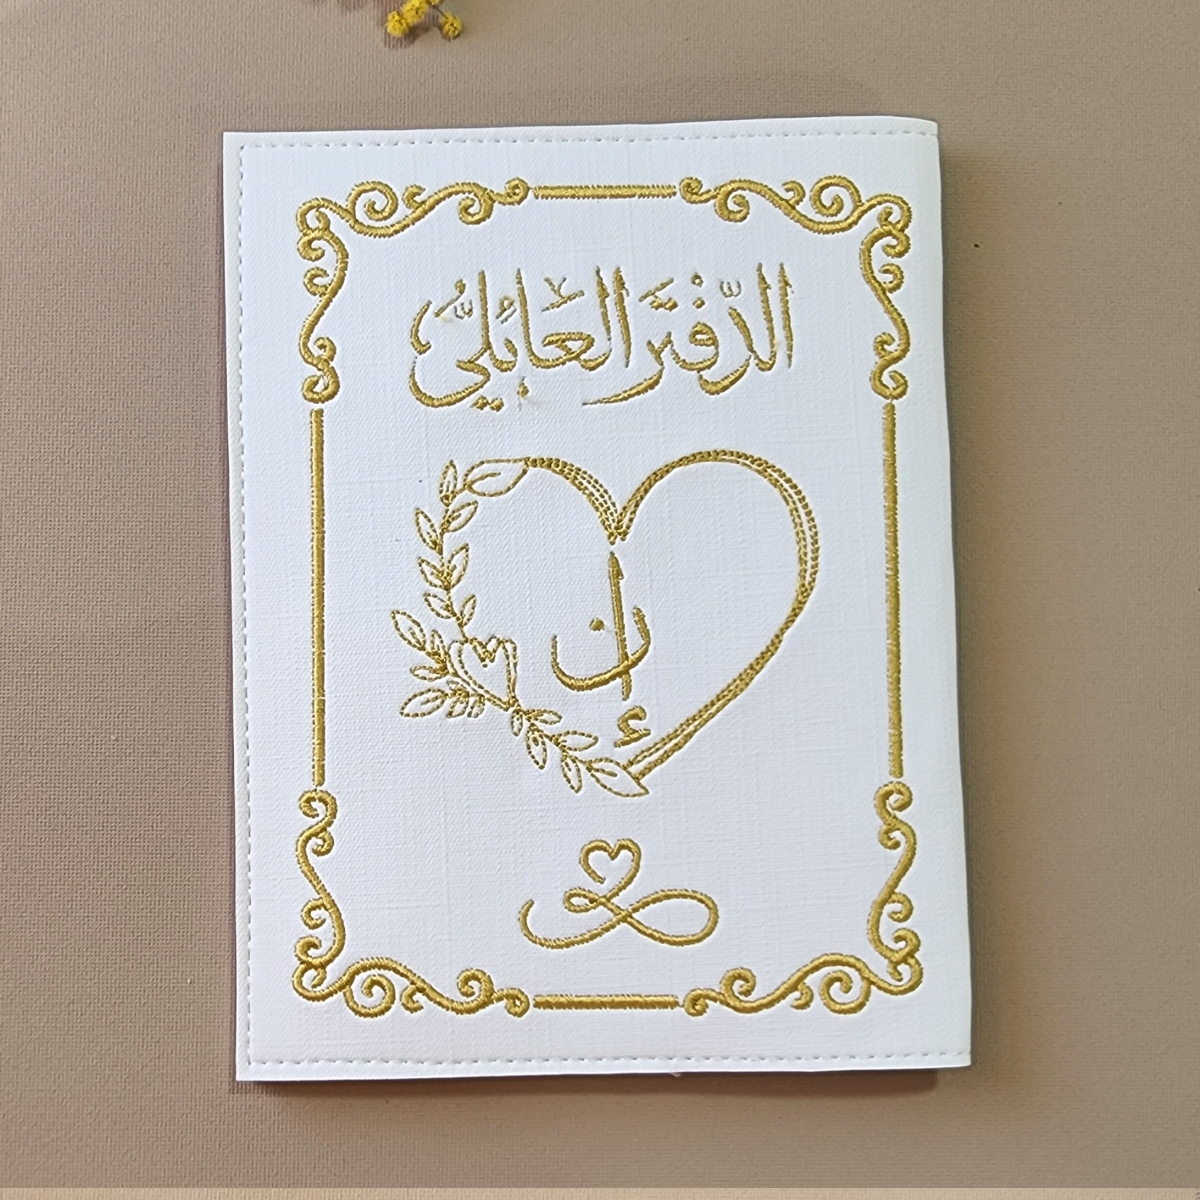 الدَّفْتَر العَائِليُّ
إ ن